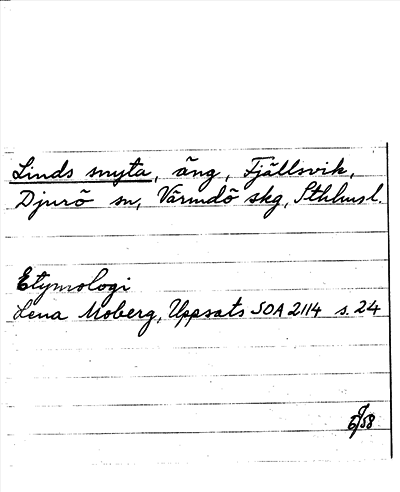 Linds myta, äng, Fjällsvik,
Djurö sn, Värmdö skg, Sthlmsl.
Etymologi
Lena Moberg, Uppsats SOA 2114 s. 24